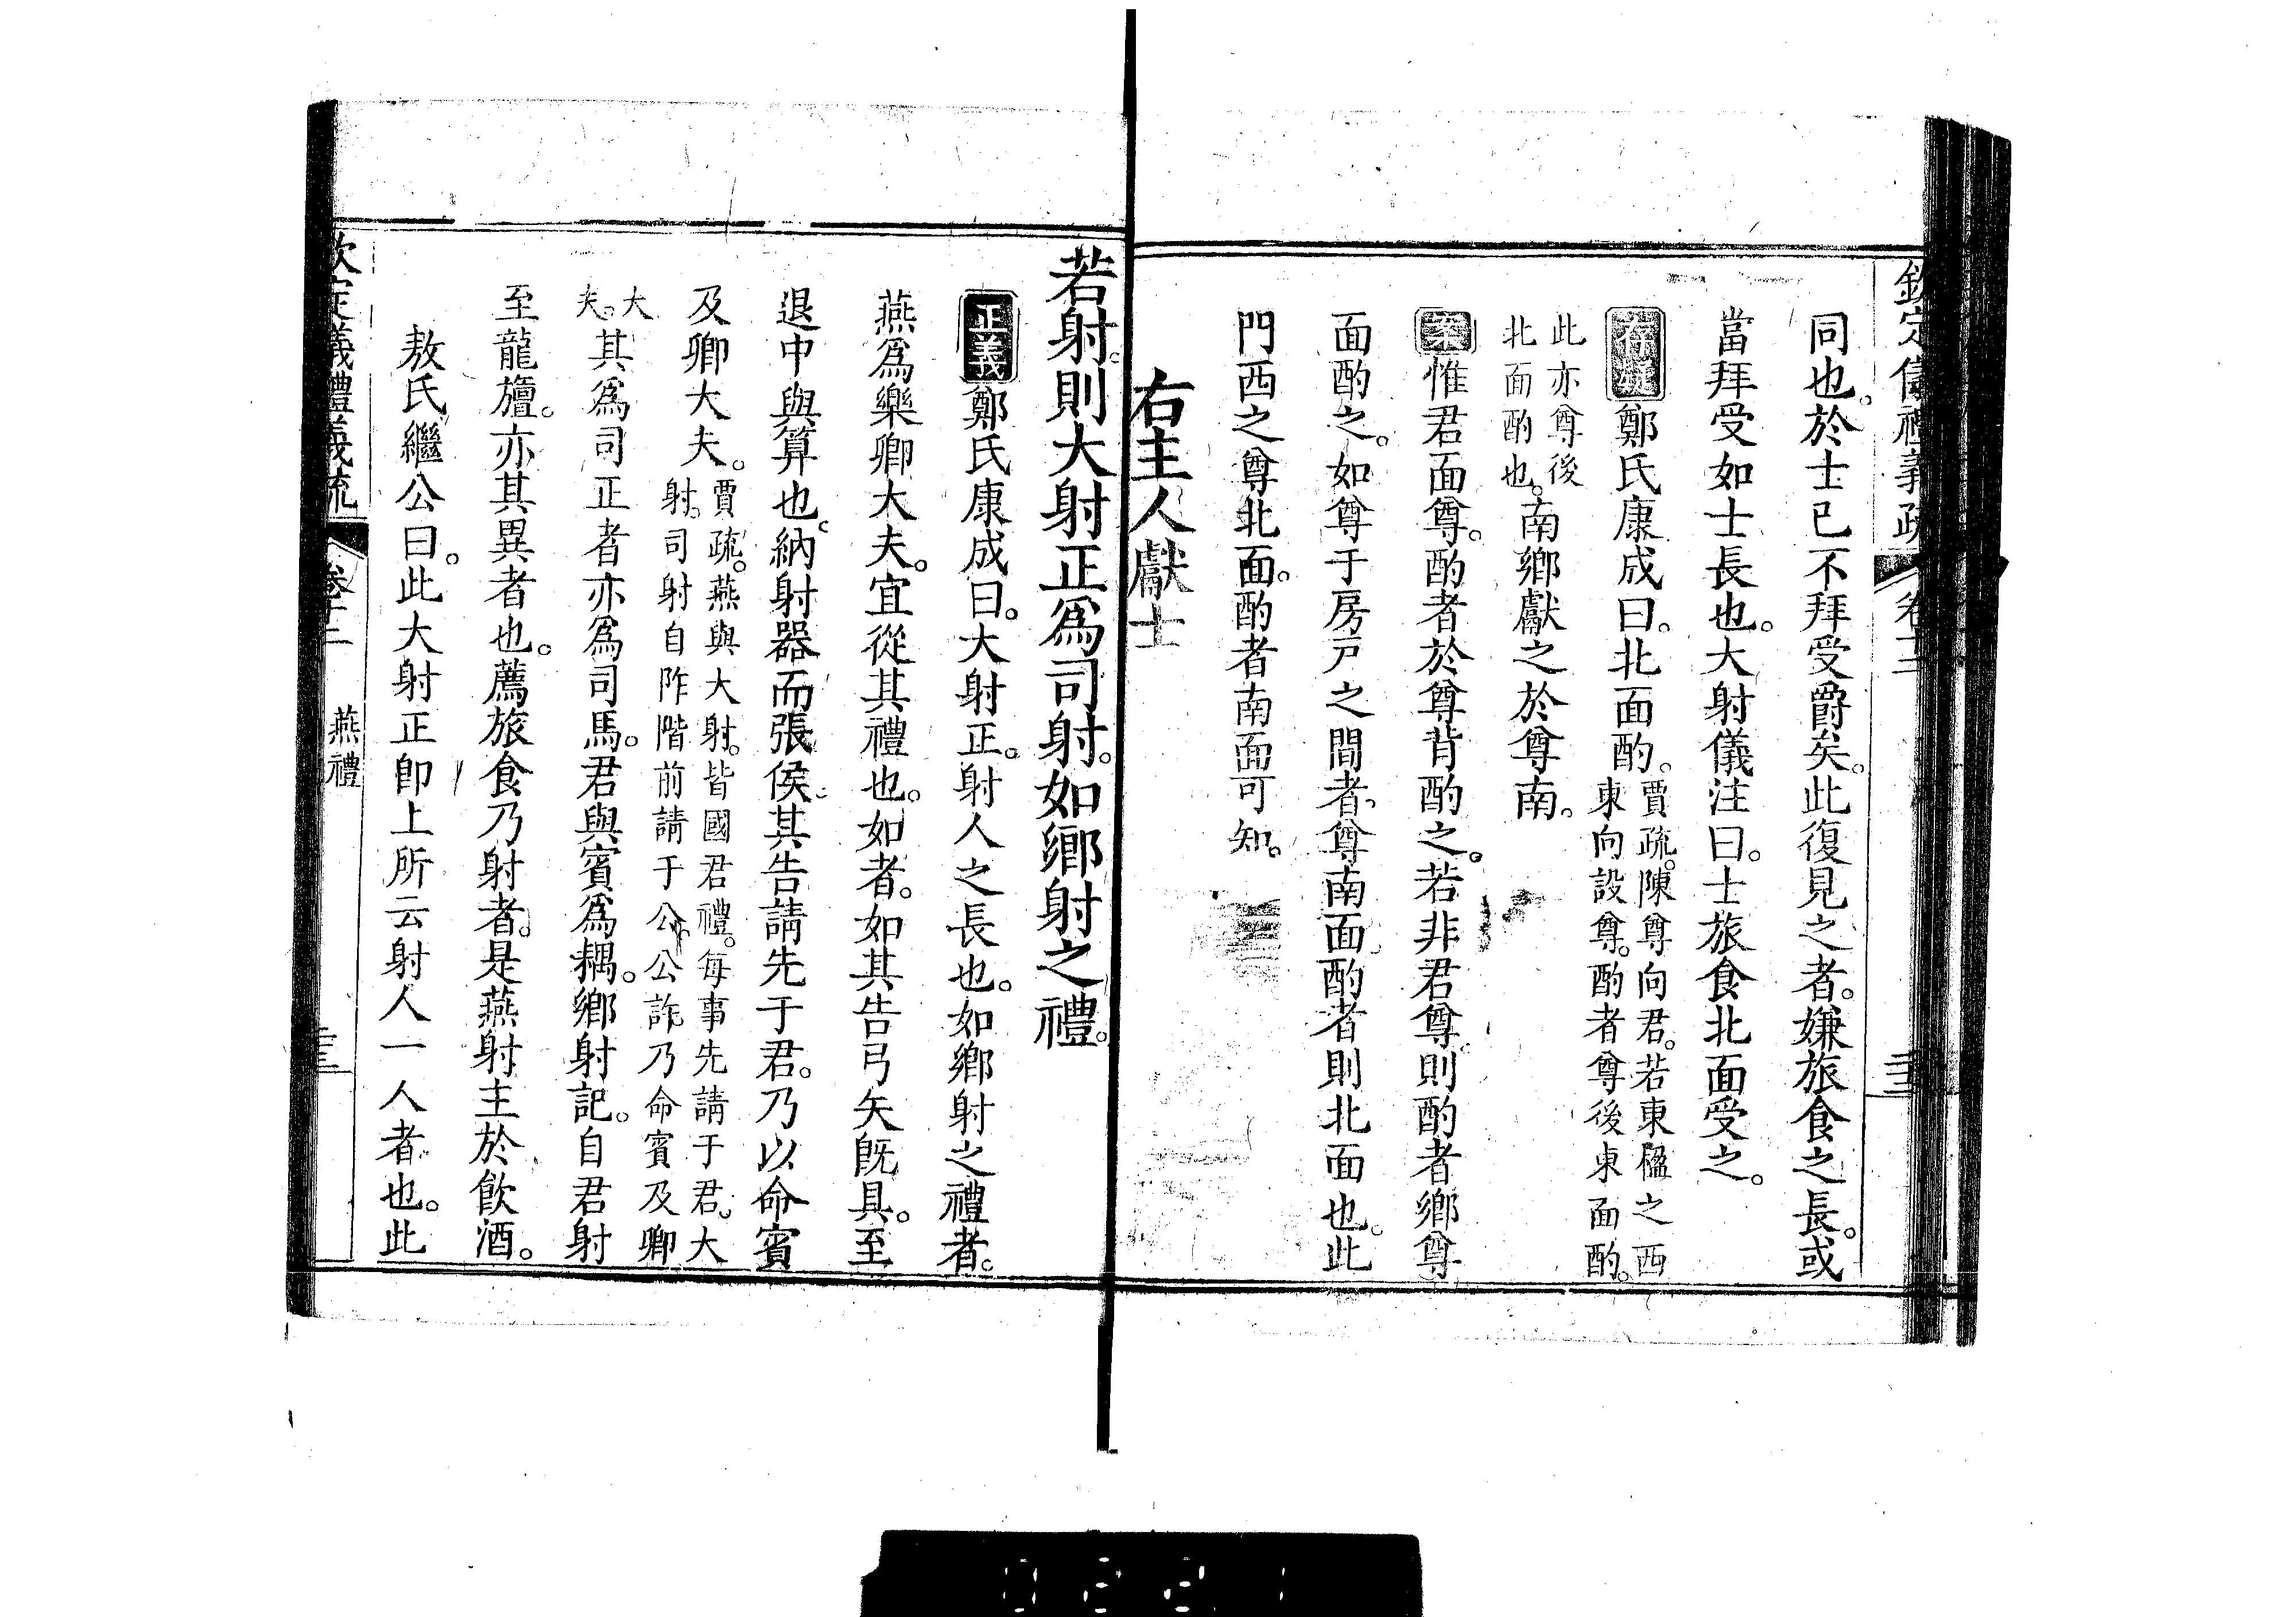 欽定儀禮義疏 卷十二
同也。於士已不拜受爵矣。此復見之者。嫌旅食之長。或
當拜受如士長也。大射儀注曰。士旅食北面受之。
存疑鄭氏康成曰。北面酌。賈疏。陳尊向君。若東楹之西
東向設尊。酌者尊後東面酌。
此亦尊後
北面酌也。南鄉獻之於尊南。
案惟君面尊。酌者於尊背酌之。若非君尊。則酌者鄉尊
面酌之。如尊于房戸之間者。尊南面。酌者則北面也。此
門西之尊北面。酌者南面可知。
右主人獻士
若射。則大射正爲司射。如鄉射之禮。
正義鄭氏康成曰。大射正。射人之長也。如鄉射之禮者。
燕爲樂卿大夫。宜從其禮也。如者。如其告弓矢旣具。至
退中與算也。納射器而張侯。其告請先于君。乃以命賓
及卿大夫。賈疏。燕與大射。皆國君禮。每事先請于君。大
射。司射自阼階前請于公。公許。乃命賓及卿
大
夫。其爲司正者亦爲司馬。君與賓爲耦。鄉射記。自君射
至龍旜。亦其異者也。薦旅食乃射者。是燕射主於飮酒。
敖氏繼公曰。此大射正卽上所云射人一人者也。此
欽定儀禮義疏 卷十二 燕禮